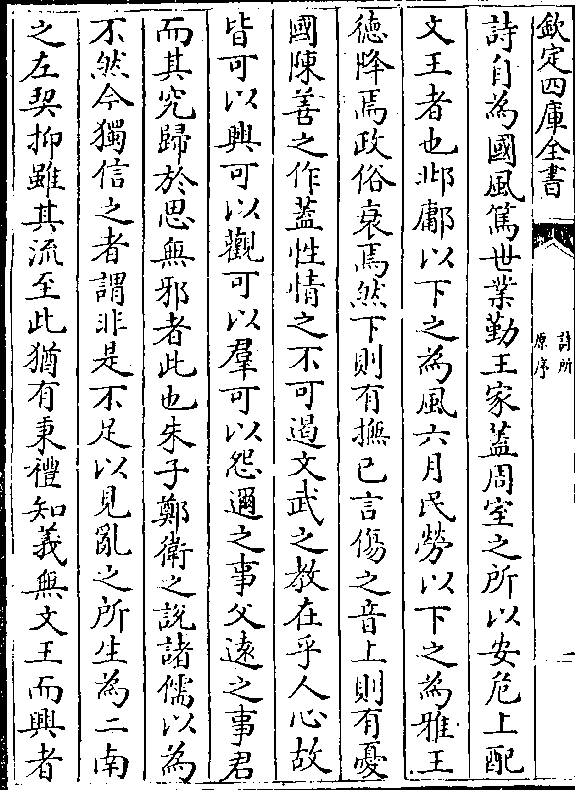 欽定四庫全書
詩所
原序
一
詩自為國風篤世業勤王家蓋周室之所以安危上配
文王者也邶鄘以下之為風六月民勞以下之為雅王
徳降焉政俗衰焉然下則有撫已言傷之音上則有憂
國陳善之作葢性情之不可遏文武之教在乎人心故
皆可以興可以觀可以羣可以怨邇之事父遠之事君
而其究歸於思無邪者此也朱子鄭衛之說諸儒以為
不然今獨信之者謂非是不足以見亂之所生為二南
之左契抑雖其流至此猶有秉禮知義無文王而興者